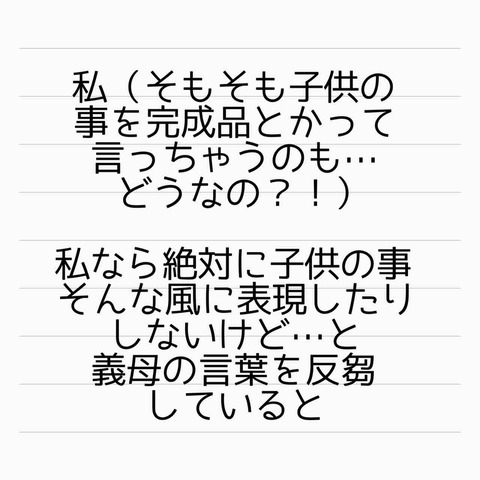 私（そもそも子供の
事を完成品とかって
言っちゃうのも…
どうなの？！）
私なら絶対に子供の事
そんな風に表現したり
しないけど…と
義母の言葉を反芻
していると